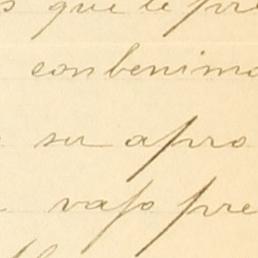 que le pre
conbenimo
su apro
vaso pre